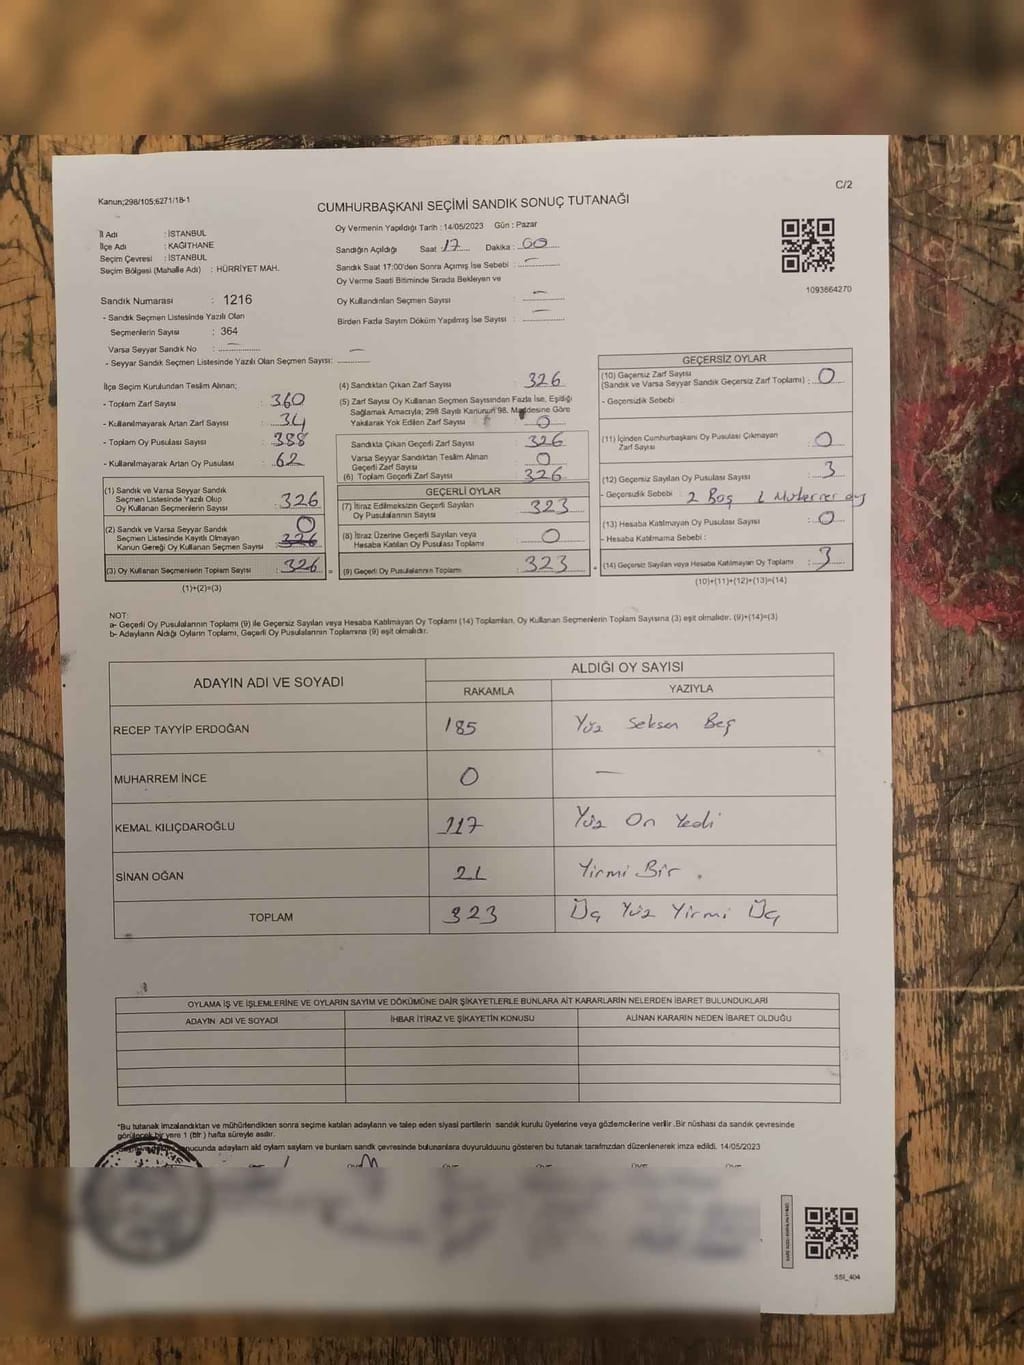 C/2
Kanun;298/105;6271/18-1
CUMHURBAŞKANI SEÇİMİ SANDIK SONUÇ TUTANAĞI
İl Adı : İSTANBUL
İlçe Adı : KAĞITHANE
Seçim Çevresi : İSTANBUL
Seçim Bölgesi (Mahalle Adı) : HÜRRİYET MAH.
Oy Vermenin Yapıldığı Tarih : 14/05/2023 Gün : Pazar
Sandığın Açıldığı Saat : 17 Dakika : 00
Sandık Saat 17:00'den Sonra Açımış İse Sebebi : —
Oy Verme Saati Bitiminde Sırada Bekleyen ve
Oy Kullandırılan Seçmen Sayısı : —
Birden Fazla Sayım Döküm Yapılmış İse Sayısı : —
1093664270
Sandık Numarası : 1216
- Sandık Seçmen Listesinde Yazılı Olan
Seçmenlerin Sayısı : 364
Varsa Seyyar Sandık No : —
- Seyyar Sandık Seçmen Listesinde Yazılı Olan Seçmen Sayısı: —
İlçe Seçim Kurulundan Teslim Alınan;
- Toplam Zarf Sayısı : 360
- Kullanılmayarak Artan Zarf Sayısı : 34
- Toplam Oy Pusulası Sayısı : 388
- Kullanılmayarak Artan Oy Pusulası : 62
(1) Sandık ve Varsa Seyyar Sandık
Seçmen Listesinde Yazılı Olup
Oy Kullanan Seçmenlerin Sayısı : 326
(2) Sandık ve Varsa Seyyar Sandık 0
Seçmen Listesinde Kayıtlı Olmayan
Kanun Gereği Oy Kullanan Seçmen Sayısı : 326
(3) Oy Kullanan Seçmenlerin Toplam Sayısı : 326 =
(1)+(2)=(3)
(4) Sandıktan Çıkan Zarf Sayısı : 326
(5) Zarf Sayısı Oy Kullanan Seçmen Sayısından Fazla İse, Eşitliği
Sağlamak Amacıyla; 298 Sayılı Kanunun 98. Maddesine Göre
Yakılarak Yok Edilen Zarf Sayısı : 0
Sandıkta Çıkan Geçerli Zarf Sayısı : 326
Varsa Seyyar Sandıktan Teslim Alınan
Geçerli Zarf Sayısı : 0
(6) Toplam Geçerli Zarf Sayısı : 326
GEÇERLİ OYLAR
(7) İtiraz Edilmeksizin Geçerli Sayılan
Oy Pusulalarının Sayısı : 323
(8) İtiraz Üzerine Geçerli Sayılan veya
Hesaba Katılan Oy Pusulası Toplamı : 0
(9) Geçerli Oy Pusulalarının Toplamı : 323 +
GEÇERSİZ OYLAR
(10) Geçersiz Zarf Sayısı
(Sandık ve Varsa Seyyar Sandık Geçersiz Zarf Toplamı) : 0
- Geçersizlik Sebebi :
(11) İçinden Cumhurbaşkanı Oy Pusulası Çıkmayan
Zarf Sayısı : 0
(12) Geçersiz Sayılan Oy Pusulası Sayısı : 3
- Geçersizlik Sebebi : 2 Boş 1 Mükerrer oy
(13) Hesaba Katılmayan Oy Pusulası Sayısı : 0
- Hesaba Katılmama Sebebi :
(14) Geçersiz Sayılan veya Hesaba Katılmayan Oy Toplamı : 3
(10)+(11)+(12)+(13)=(14)
NOT:
a- Geçerli Oy Pusulalarının Toplamı (9) ile Geçersiz Sayılan veya Hesaba Katılmayan Oy Toplamı (14) Toplamları, Oy Kullanan Seçmenlerin Toplam Sayısına (3) eşit olmalıdır. (9)+(14)=(3)
b- Adayların Aldığı Oyların Toplamı, Geçerli Oy Pusulalarının Toplamına (9) eşit olmalıdır.
ADAYIN ADI VE SOYADI
ALDIĞI OY SAYISI
RAKAMLA YAZIYLA
RECEP TAYYİP ERDOĞAN 185 Yüz Seksen Beş
MUHARREM İNCE 0 —
KEMAL KILIÇDAROĞLU 117 Yüz On Yedi
SİNAN OĞAN 21 Yirmi Bir .
TOPLAM 323 Üç Yüz Yirmi Üç
OYLAMA İŞ VE İŞLEMLERİNE VE OYLARIN SAYIM VE DÖKÜMÜNE DAİR ŞİKAYETLERLE BUNLARA AİT KARARLARIN NELERDEN İBARET BULUNDUKLARI
ADAYIN ADI VE SOYADI İHBAR İTİRAZ VE ŞİKAYETİN KONUSU ALINAN KARARIN NEDEN İBARET OLDUĞU
*Bu tutanak imzalandıktan ve mühürlendikten sonra seçime katılan adayların ve talep eden siyasi partilerin sandık kurulu üyelerine veya gözlemcilerine verilir .Bir nüshası da sandık çevresinde
görülecek bir yere 1 (bir) hafta süreyle asılır.
sonucunda adayların aldı oyların sayıları ve bunların sandık çevresinde bulunanlara duyurulduunu gösteren bu tutanak tarafımızdan düzenlenerek imza edildi. 14/05/2023
SSI_404